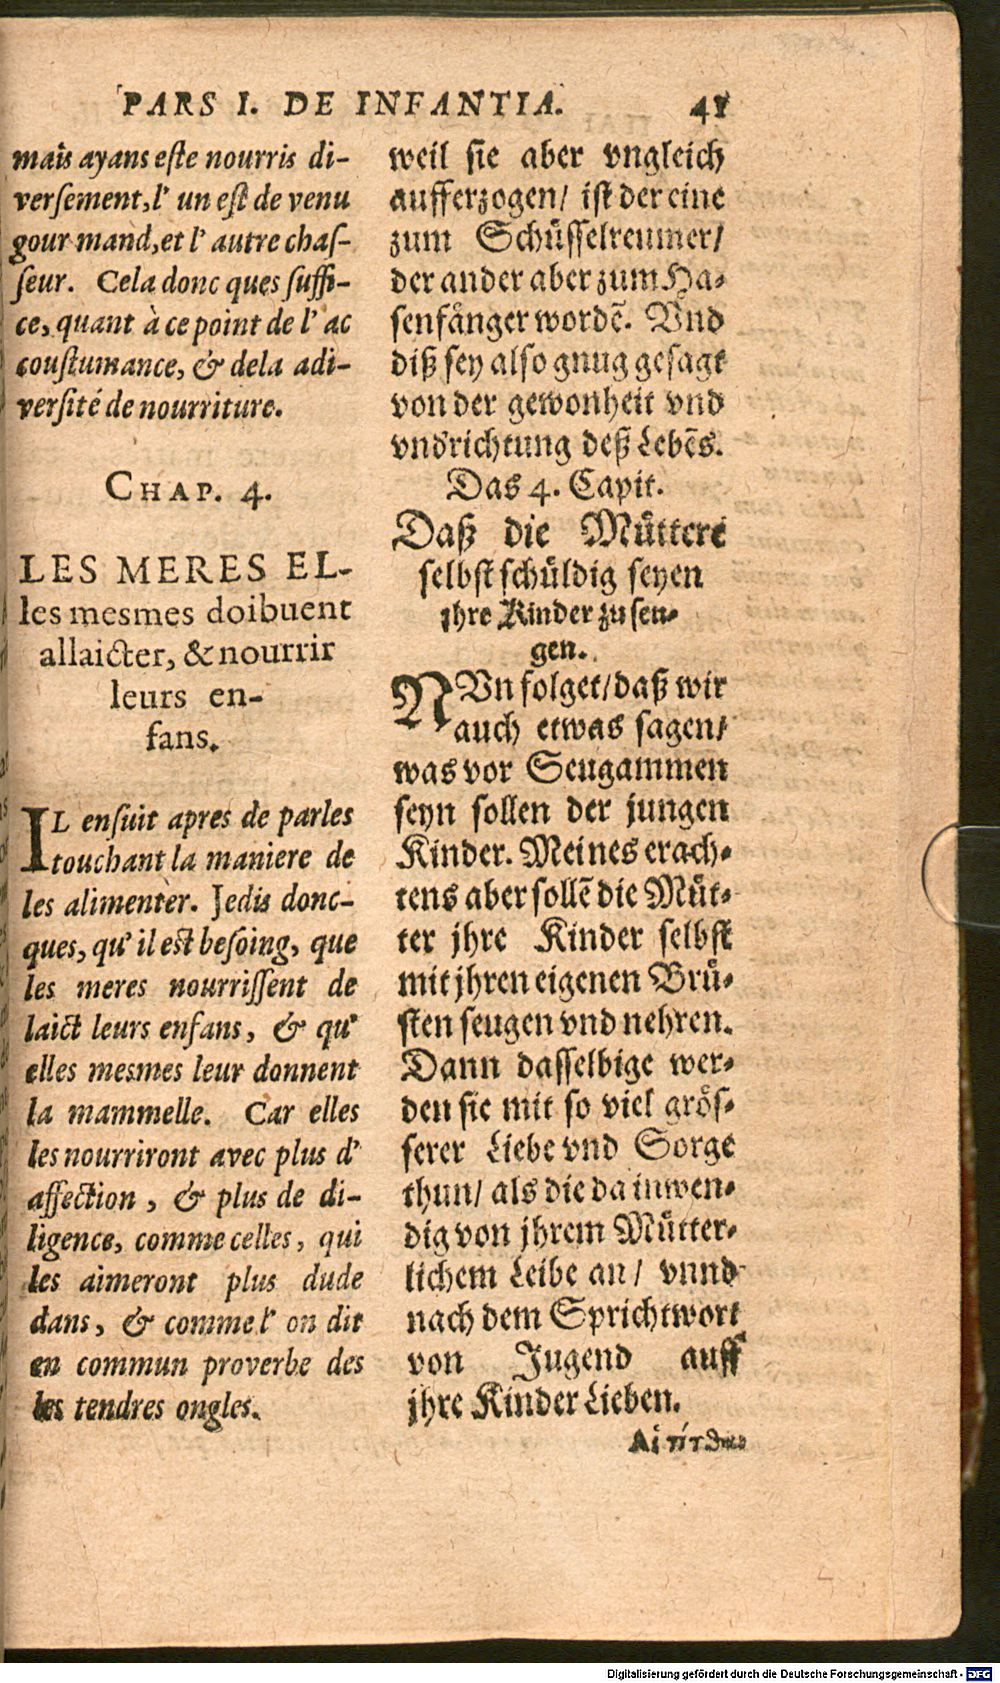 PARS I. DE INFANTIA. 41
mais ayans eſte nourris di-
verſement, l' un eſt de venu
gour mand, et l' autre chaſ-
ſeur. Cela donc ques ſuffi-
ce, quant à ce point de l' ac
couſtumance, & dela adi-
verſité de nourriture.
CHAP. 4.
LES MERES EL-
les mesmes doibuent
allaicter, & nourrir
leurs en-
fans.
IL enſuit apres de parles
touchant la maniere de
les alimenter. Jedis donc-
ques, qu' il est beſoing, que
les meres nourriſſent de
laict leurs enfans, & qu'
elles mesmes leur donnent
la mammelle. Car elles
les nourriront avec plus d'
affection, & plus de di-
ligence, comme celles, qui
les aimeront plus dude
dans, & comme l' on dit
en commun proverbe des
les tendres ongles.
weil ſie aber vngleich
aufferzogen/ iſt der eine
zum Schüſſelreumer/
der ander aber zum Ha-
ſenfånger wordē. Vnd
diß ſey alſo gnug geſagt
von der gewonheit vnd
vnd richtung deß Lebēs.
Das 4. Capit.
Daß die Můttere
ſelbſt ſchůldig ſeyen
jhre Kinder zu ſeu-
gen.
NVn folget/ daß wir
auch etwas ſagen/
was vor Seugammen
ſeyn ſollen der jungen
Kinder. Meines erach-
tens aber ſollē die Můt-
ter jhre Kinder ſelbſt
mit jhren eigenen Brů-
ſten ſeugen vnd nehren.
Dann daſſelbige wer-
den ſie mit ſo viel gröſ-
ſerer Liebe vnd Sorge
thun/ als die da inwen-
dig von jhrem Můtter-
lichem Leibe an/ vnnd
nach dem Sprichtwort
von Jugend auff
jhre Kinder Lieben.
Digitalisierung gefördert durch die Deutsche Forschungsgemeinschaft - DFG